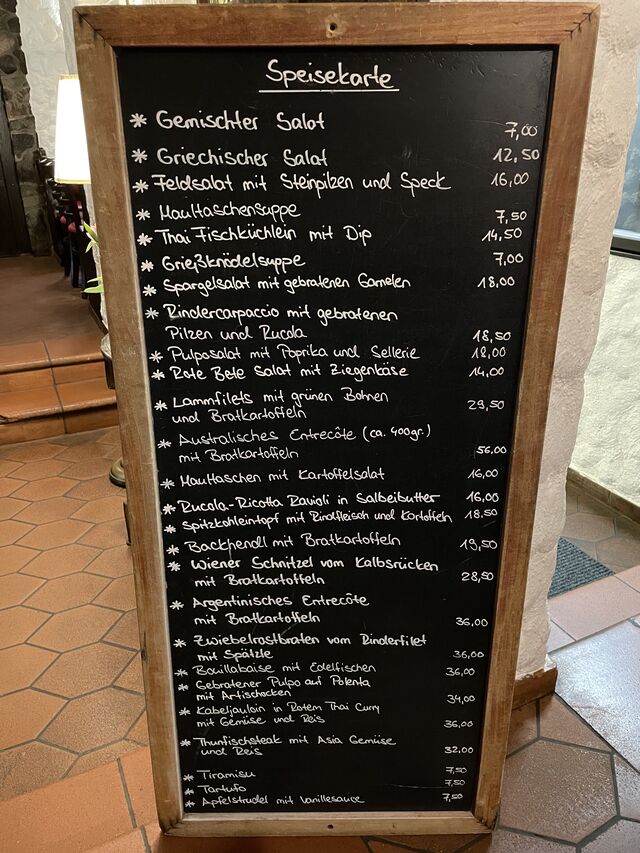 Speisekarte
* Gemischter Salat 7,00
* Griechischer Salat 12,50
* Feldsalat mit Steinpilzen und Speck 16,00
* Maultaschensuppe 7,50
* Thai Fischküchlein mit Dip 14,50
* Grießknödelsuppe 7,00
* Spargelsalat mit gebratenen Garnelen 18,00
* Rindercarpaccio mit gebratenen
Pilzen und Rucola 18,50
* Pulposalat mit Paprika und Sellerie 18,00
* Rote Bete Salat mit Ziegenkäse 14,00
* Lammfilets mit grünen Bohnen
und Bratkartoffeln 29,50
* Australisches Entrecôte (ca. 400gr.)
mit Bratkartoffeln 56,00
* Maultaschen mit Kartoffelsalat 16,00
* Rucola-Ricotta Ravioli in Salbeibutter 16,00
* Spitzkohleintopf mit Rindfleisch und Kartoffeln 18,50
* Backhendl mit Bratkartoffeln 19,50
* Wiener Schnitzel vom Kalbsrücken
mit Bratkartoffeln 28,50
* Argentinisches Entrecôte
mit Bratkartoffeln 36,00
* Zwiebelrostbraten vom Rinderfilet
mit Spätzle 36,00
* Bouillabaise mit Edelfischen 36,00
* Gebratener Pulpo auf Polenta
mit Artischocken 34,00
* Kabeljauloin in Rotem Thai Curry
mit Gemüse und Reis 36,00
* Thunfischsteak mit Asia Gemüse
und Reis 32,00
* Tiramisu 7,50
* Tartufo 7,50
* Apfelstrudel mit Vanillesauce 7,50